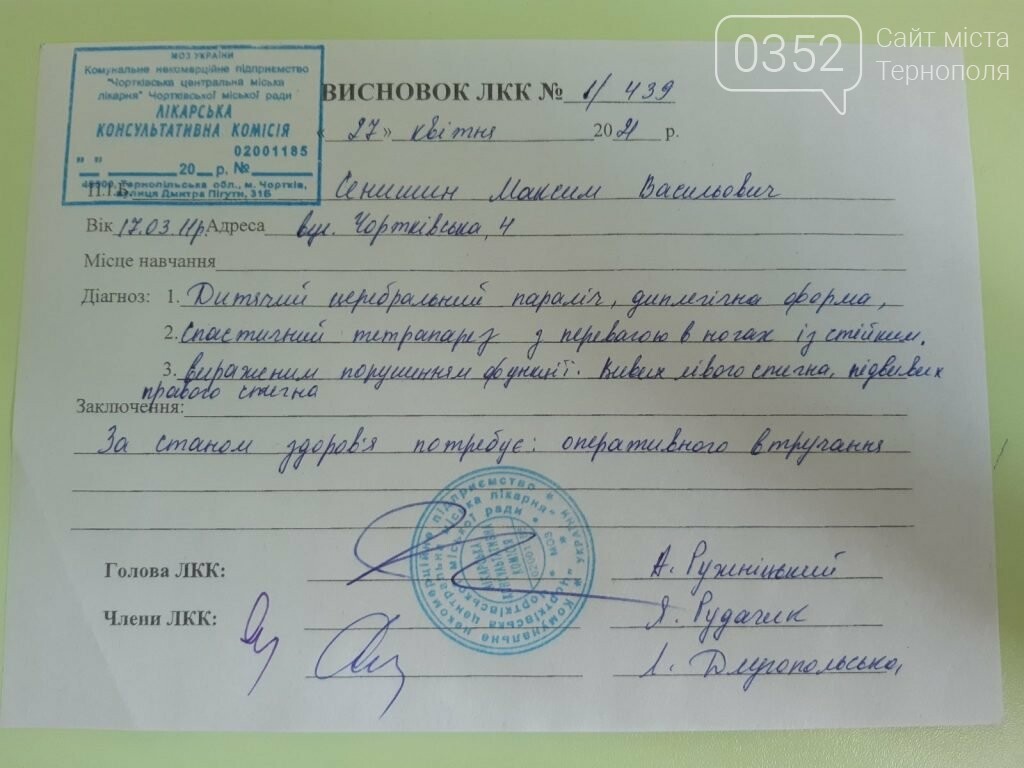 0352
Сайт міста
Тернополя
МОЗ УКРАЇНИ
Комунальне некомерційне підприємство
"Чортківська центральна міська
лікарня" Чортківської міської ради
ЛІКАРСЬКА
КОНСУЛЬТАТИВНА КОМІСІЯ
02001185
" " 20 р. №
48500, Тернопільська обл., м. Чортків,
вулиця Дмитра Пігути, 31Б
ВИСНОВОК ЛКК № 1/439
« 27 » квітня 2021 р.
П.І.Б. Сенишин Максим Васильович
Вік 17.03.11р. Адреса вул. Чортківська, 4
Місце навчання
Діагноз: 1. Дитячий церебральний параліч, диплегічна форма,
2. Спастичний тетрапарез з перевагою в ногах із стійким,
3. вираженим порушенням функції. Вивих лівого стегна, підвивих
правого стегна
Заключення:
За станом здоров'я потребує: оперативного втручання
Голова ЛКК: А. Ружніцький
Члени ЛКК: Я. Рудачик
Л. Длугопольська,